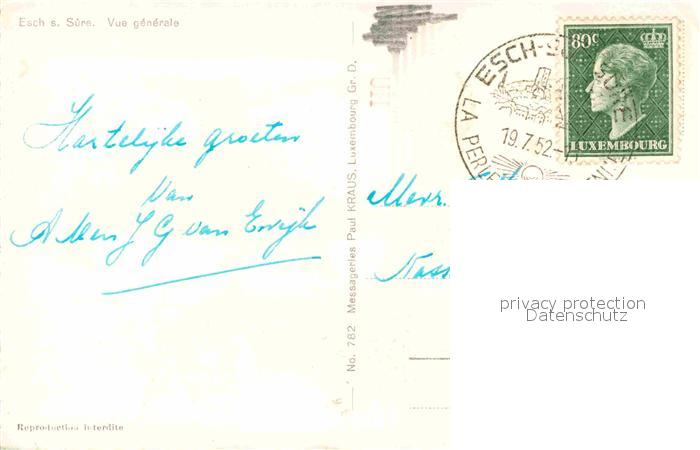 Esch s. Sûre. Vue générale
Hartelijke groeten
van
J G van Ewijk
Reproduction interdite
No. 782 Messageries Paul KRAUS, Luxembourg Gr.-D.
ESCH-S
19.7.52
LA PER
80c
LUXEMBOURG
Mevr.
Nass
privacy protection
Datenschutz